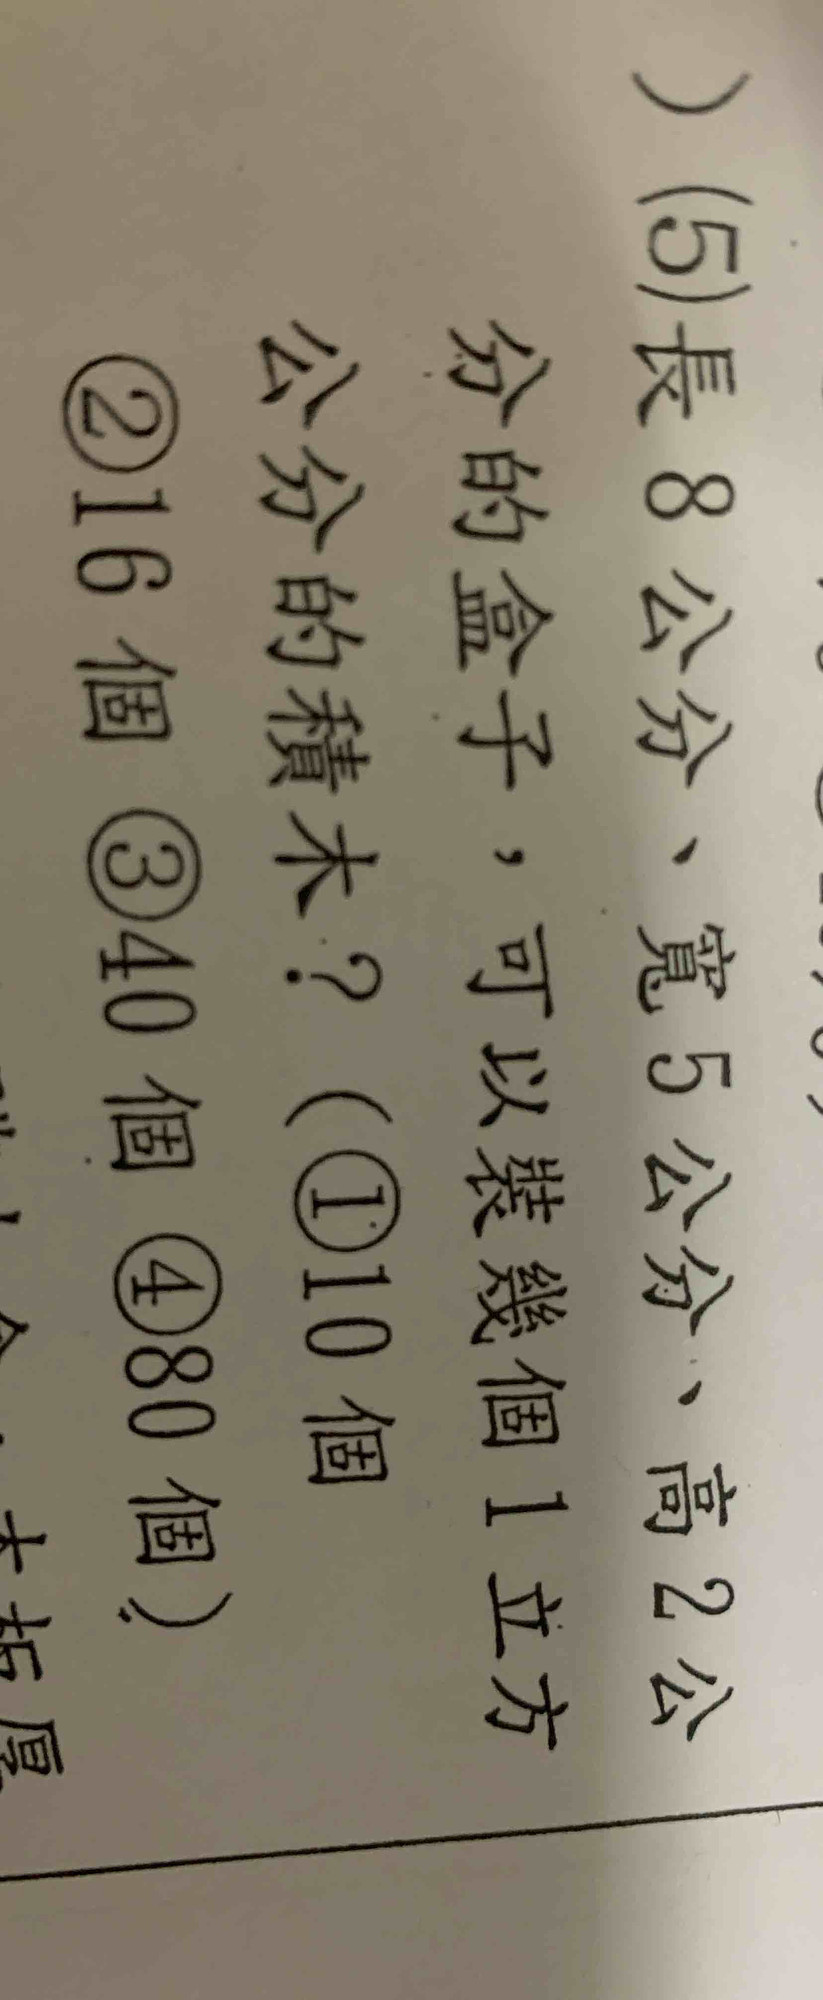 ）(5)長 8 公分、寬 5 公分、高 2 公
分的盒子，可以裝幾個 1 立方
公分的積木？（①10 個
②16 個 ③40 個 ④80 個）